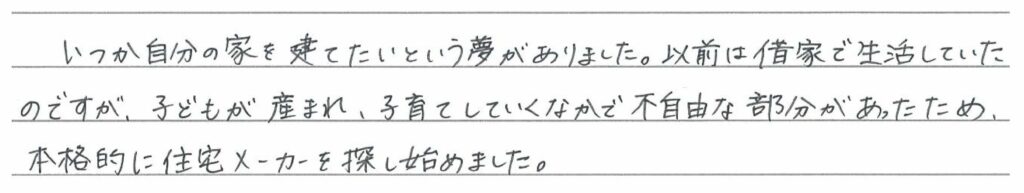 いつか自分の家を建てたいという夢がありました。以前は借家で生活していた
のですが、子どもが産まれ、子育てしていくなかで不自由な部分があったため、
本格的に住宅メーカーを探し始めました。